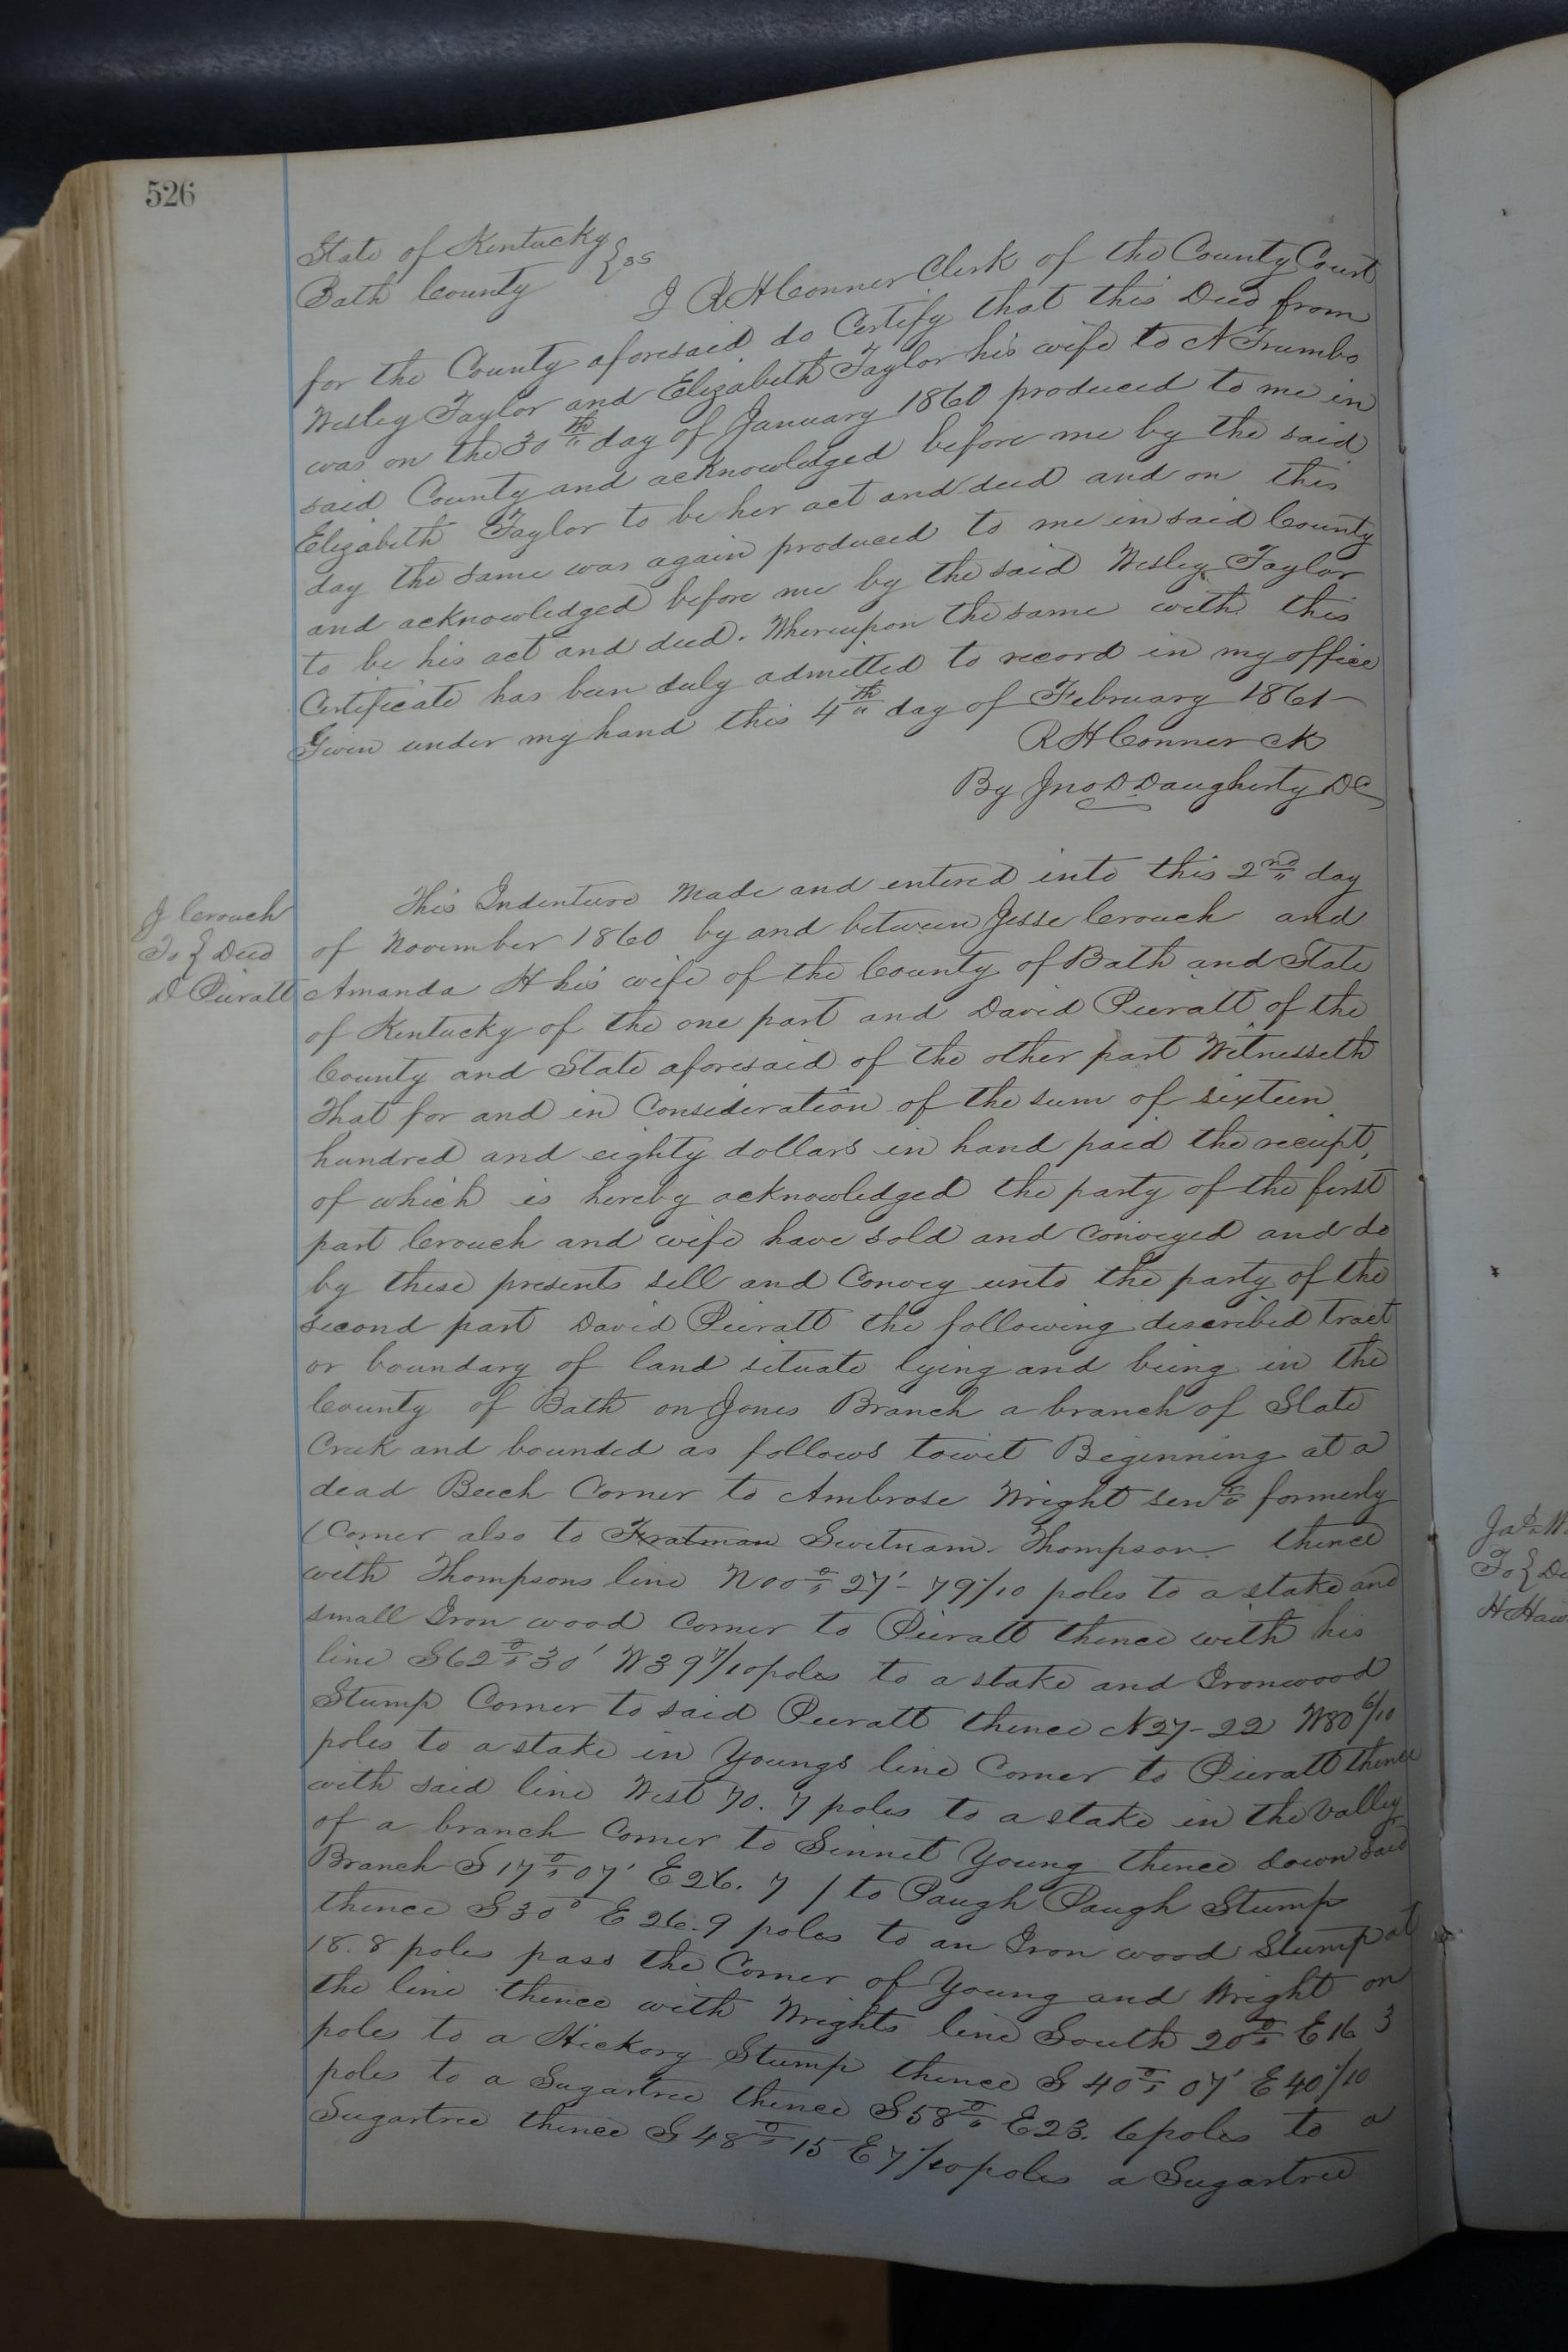 526
State of Kentucky } ss
Bath County
I R H Conner Clerk of the County Court
for the County aforesaid do Certify that this Deed from
Wesley Taylor and Elizabeth Taylor his wife to A Trumbo
was on the 30th day of January 1860 produced to me in
said County and acknowledged before me by the said
Elizabeth Taylor to be her act and deed and on this
day the same was again produced to me in said County
and acknowledged before me by the said Wesley Taylor
to be his act and deed. Whereupon the same with this
Certificate has been duly admitted to record in my office
Given under my hand this 4th day of February 1861—
R H Conner Ck
By Jno D Daugherty DC
J Crouch
To } Deed
D Pieratt
This Indenture Made and entered into this 2nd day
of November 1860 by and between Jesse Crouch and
Amanda H his wife of the County of Bath and State
of Kentucky of the one part and David Pieratt of the
County and State aforesaid of the other part Witnesseth
That for and in Consideration of the sum of sixteen
hundred and eighty dollars in hand paid the receipt,
of which is hereby acknowledged the party of the first
part Crouch and wife have sold and conveyed and do
by these presents sell and Convey unto the party of the
second part David Pieratt the following described tract
or boundary of land situate lying and being in the
County of Bath on Jones Branch a branch of Slate
Creek and bounded as follows towit Beginning at a
dead Beech Corner to Ambrose Wright senr formerly
(Corner also to Tratman Swetnam Thompson thence
with Thompsons line N 00° 27' - 79/10 poles to a stake and
small Iron wood Corner to Pieratt thence with his
line S 62° 30' W 39 7/10 poles to a stake and Ironwood
Stump Corner to said Pieratt thence N 27-22 W 80 6/10
poles to a stake in Youngs line Corner to Pieratt thence
with said line West 70. 7 poles to a stake in the Valley
of a branch Corner to Sinnet Young thence down said
Branch S 17° 07' E 26. 7 / to Paugh Paugh Stump
thence S 30° E 26.9 poles to an Iron wood Stump at
18. 8 poles pass the Corner of Young and Wright on
the line thence with Wrights line South 20° E 16 3
poles to a Hickory Stump thence S 40° 07' E 40/10
poles to a Sugartree thence S 58° E 23. 6 poles to a
Sugartree thence S 48° 15 E 7/10 poles a Sugartree
To } De